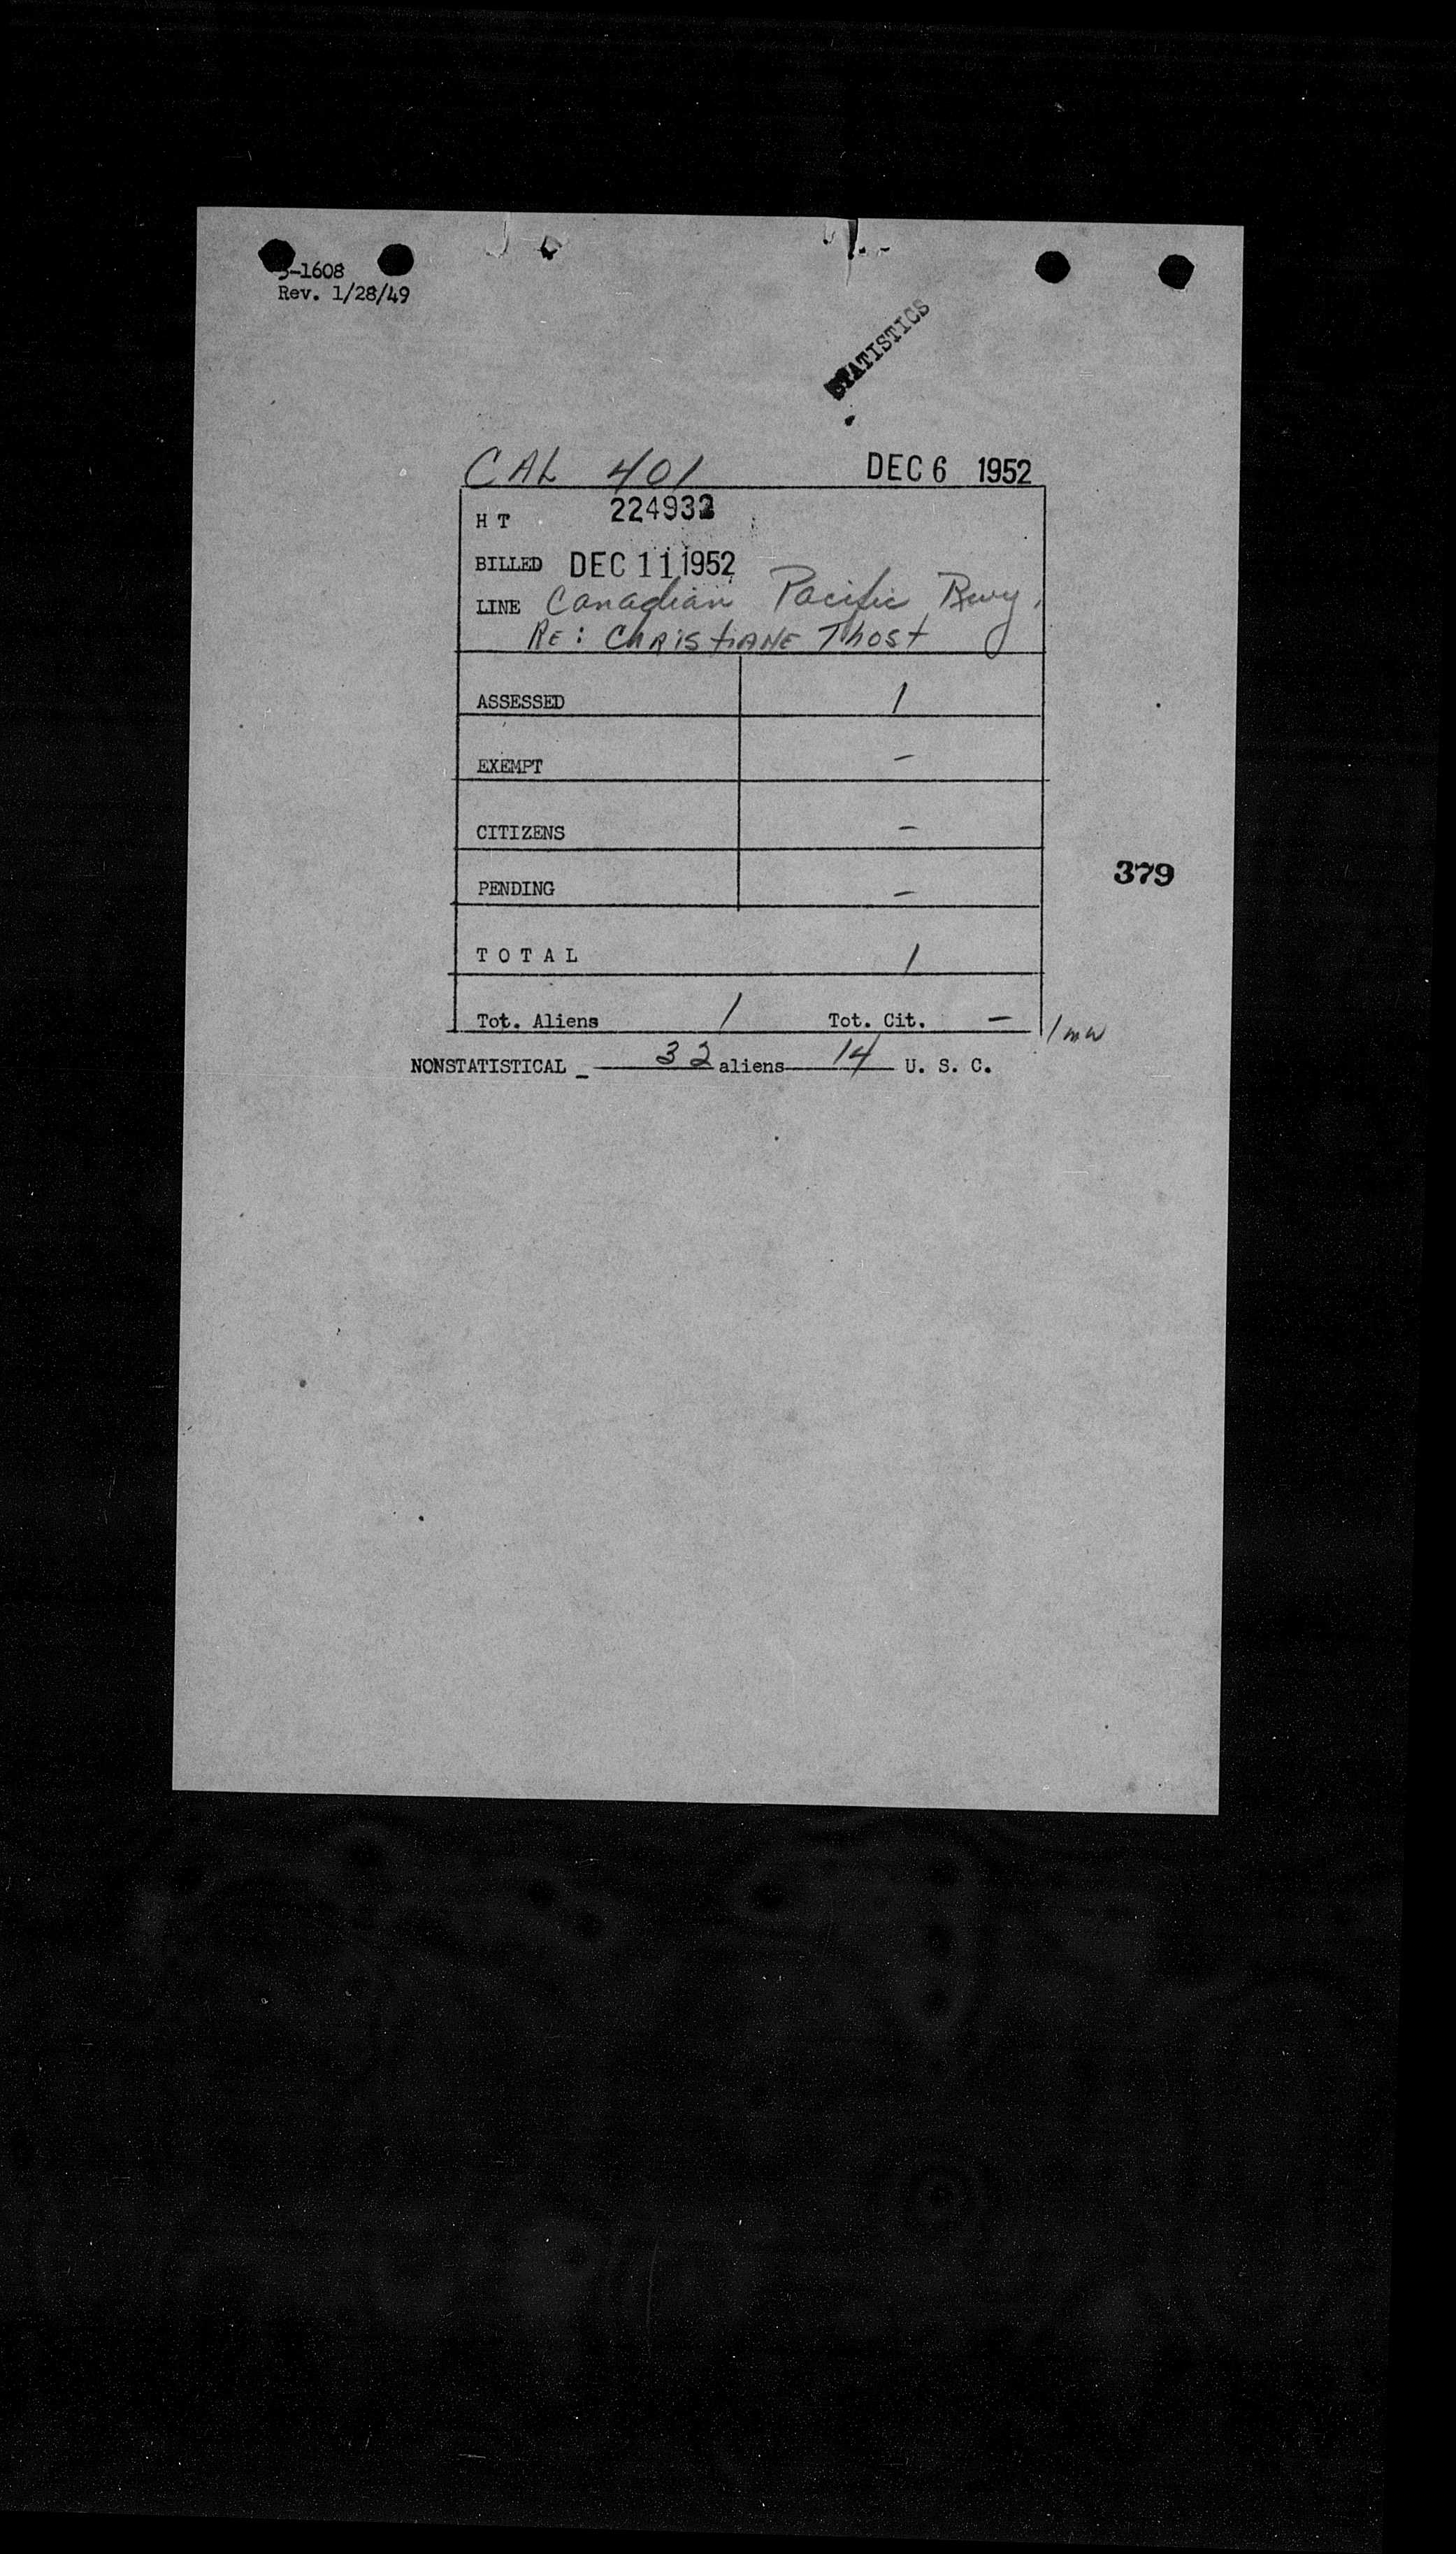 -1608
Rev. 1/28/49
STATISTICS
CAL 401 DEC 6 1952
H T 224932
BILLED DEC 11 1952
LINE Canadian Pacific Rwy.
RE: CHRiSTiANE Thost
ASSESSED 1
EXEMPT -
CITIZENS -
379
PENDING -
T O T A L 1
Tot. Aliens 1 Tot. Cit. -
NONSTATISTICAL - 32 aliens 14 U. S. C.